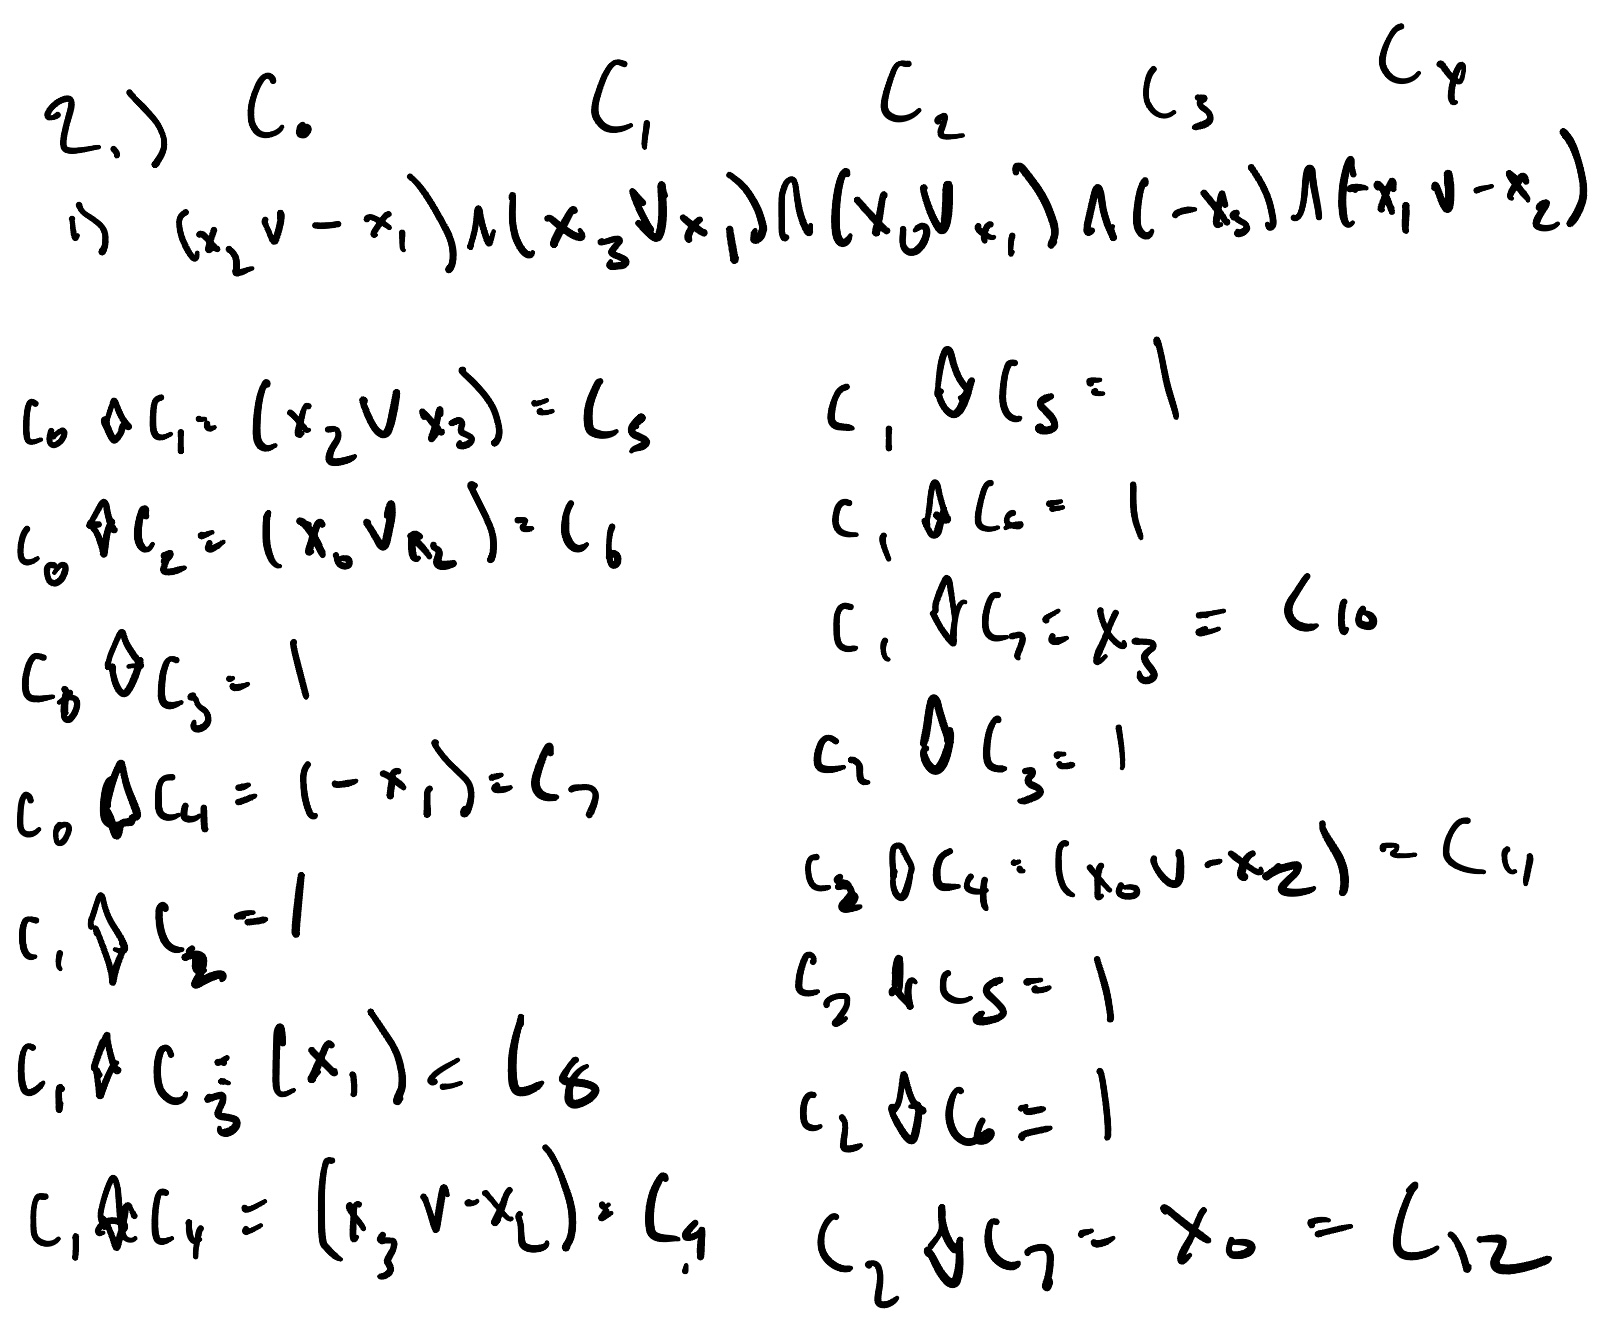 2.) C₀ C₁ C₂ C₃ C₄
1) (x₂ ∨ -x₁) ∧ (x₃ ∨ x₁) ∧ (x₀ ∨ x₁) ∧ (-x₃) ∧ (-x₁ ∨ -x₂)
C₀ ◊ C₁ = (x₂ ∨ x₃) = C₅
C₀ ◊ C₂ = (x₀ ∨ x₂) = C₆
C₀ ◊ C₃ = 1
C₀ ◊ C₄ = (-x₁) = C₇
C₁ ◊ C₂ = 1
C₁ ◊ C₃ = (x₁) = C₈
C₁ ◊ C₄ = (x₃ ∨ -x₂) = C₉
C₁ ◊ C₅ = 1
C₁ ◊ C₆ = 1
C₁ ◊ C₇ = x₃ = C₁₀
C₂ ◊ C₃ = 1
C₂ ◊ C₄ = (x₀ ∨ -x₂) = C₁₁
C₂ ◊ C₅ = 1
C₂ ◊ C₆ = 1
C₂ ◊ C₇ = x₀ = C₁₂